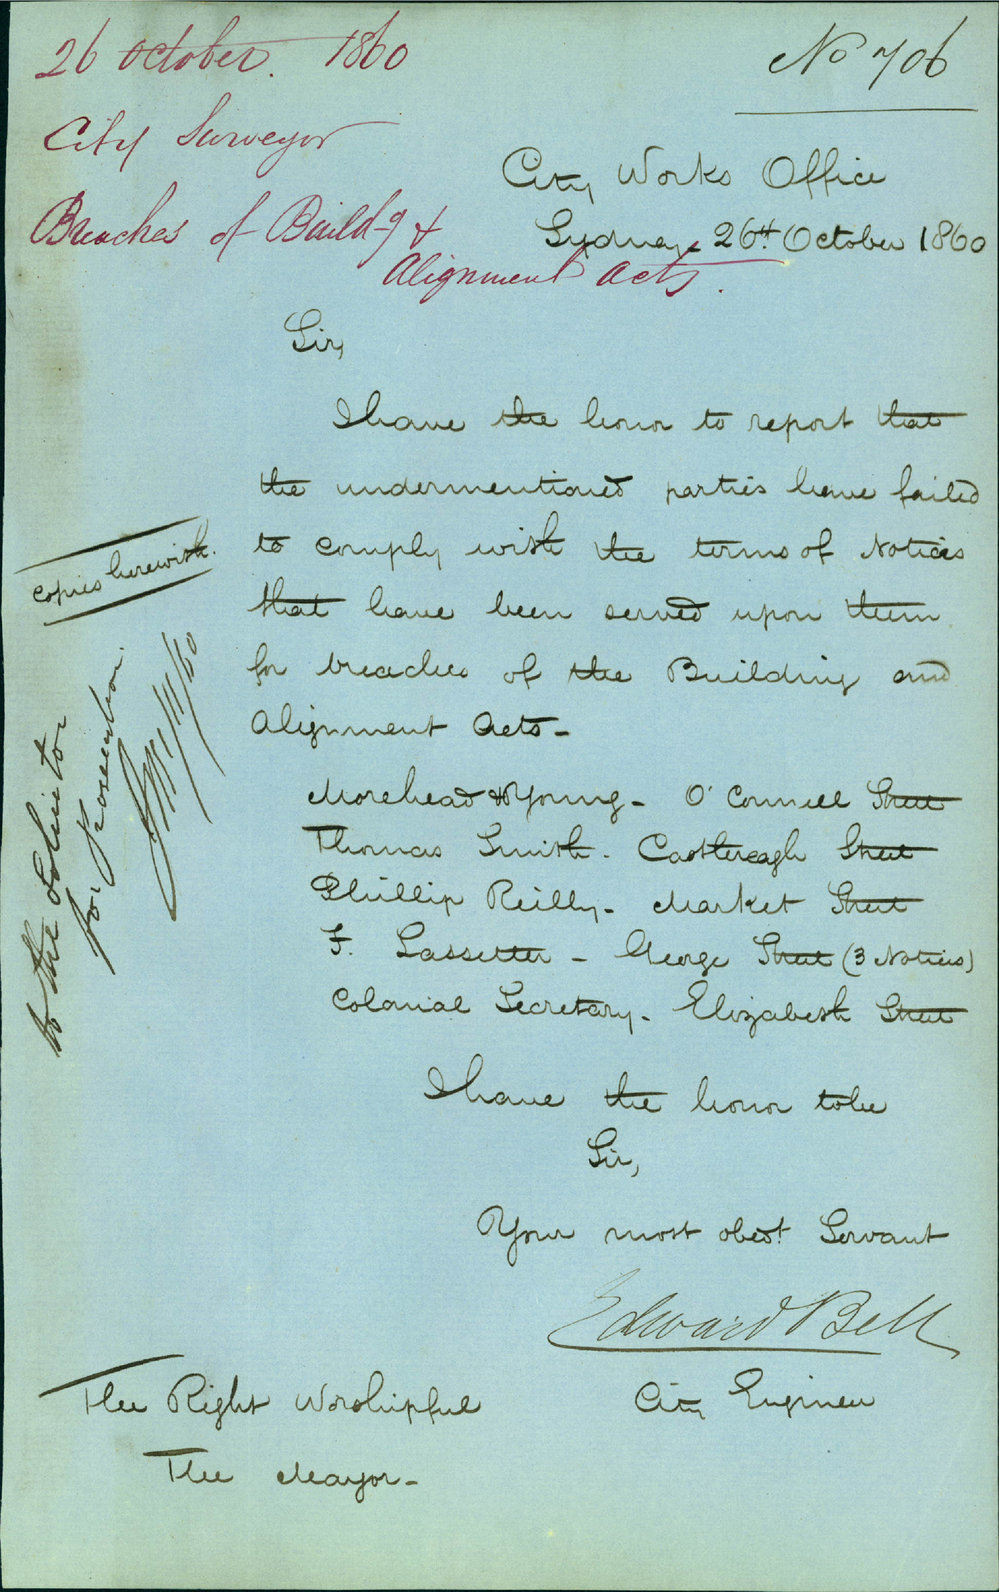 26 October. 1860
City Surveyor
Breaches of Build-g &
Alignment Acts.
No 706
City Works Office
Sydney 26th October 1860
Sir,
I have the honor to report that
the undermentioned parties have failed
to comply with the terms of Notices
that have been served upon them
for breaches of the Building and
Alignment Acts -
Morehead & Young - O'Connell Street
Thomas Smith - Castlereagh Street
Phillip Reilly - Market Street
F. Lassetter - George Street (3 Notices)
Colonial Secretary - Elizabeth Street
I have the honor to be
Sir,
Your most obedt. Servant
Edward Bell
City Engineer
The Right Worshipful
The Mayor -
Copies herewith.
To the Solicitor
for Prosecution.
/11/60